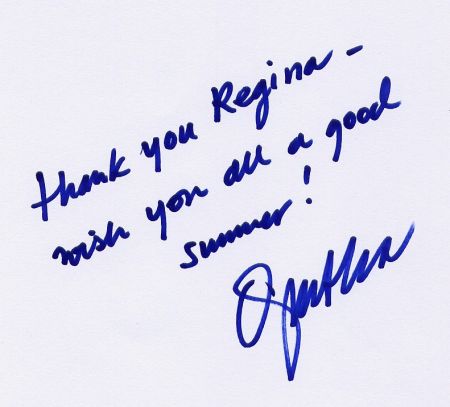 thank you Regina -
wish you all a good
summer!